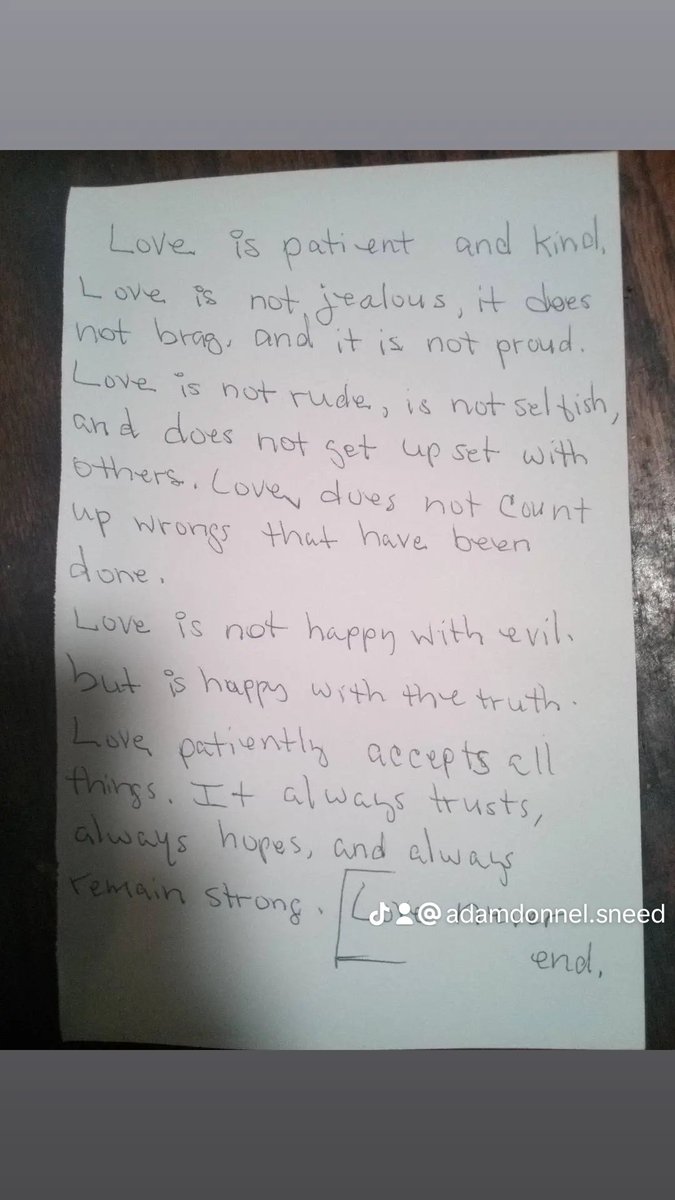 Love is patient and kind.
Love is not jealous, it does
not brag, and it is not proud.
Love is not rude, is not selfish,
and does not get up set with
others. Love does not count
up wrongs that have been
done.
Love is not happy with evil.
but is happy with the truth.
Love patiently accepts all
things. It always trusts,
always hopes, and always
remain strong. [Love
@adamdonnel.sneed
end.